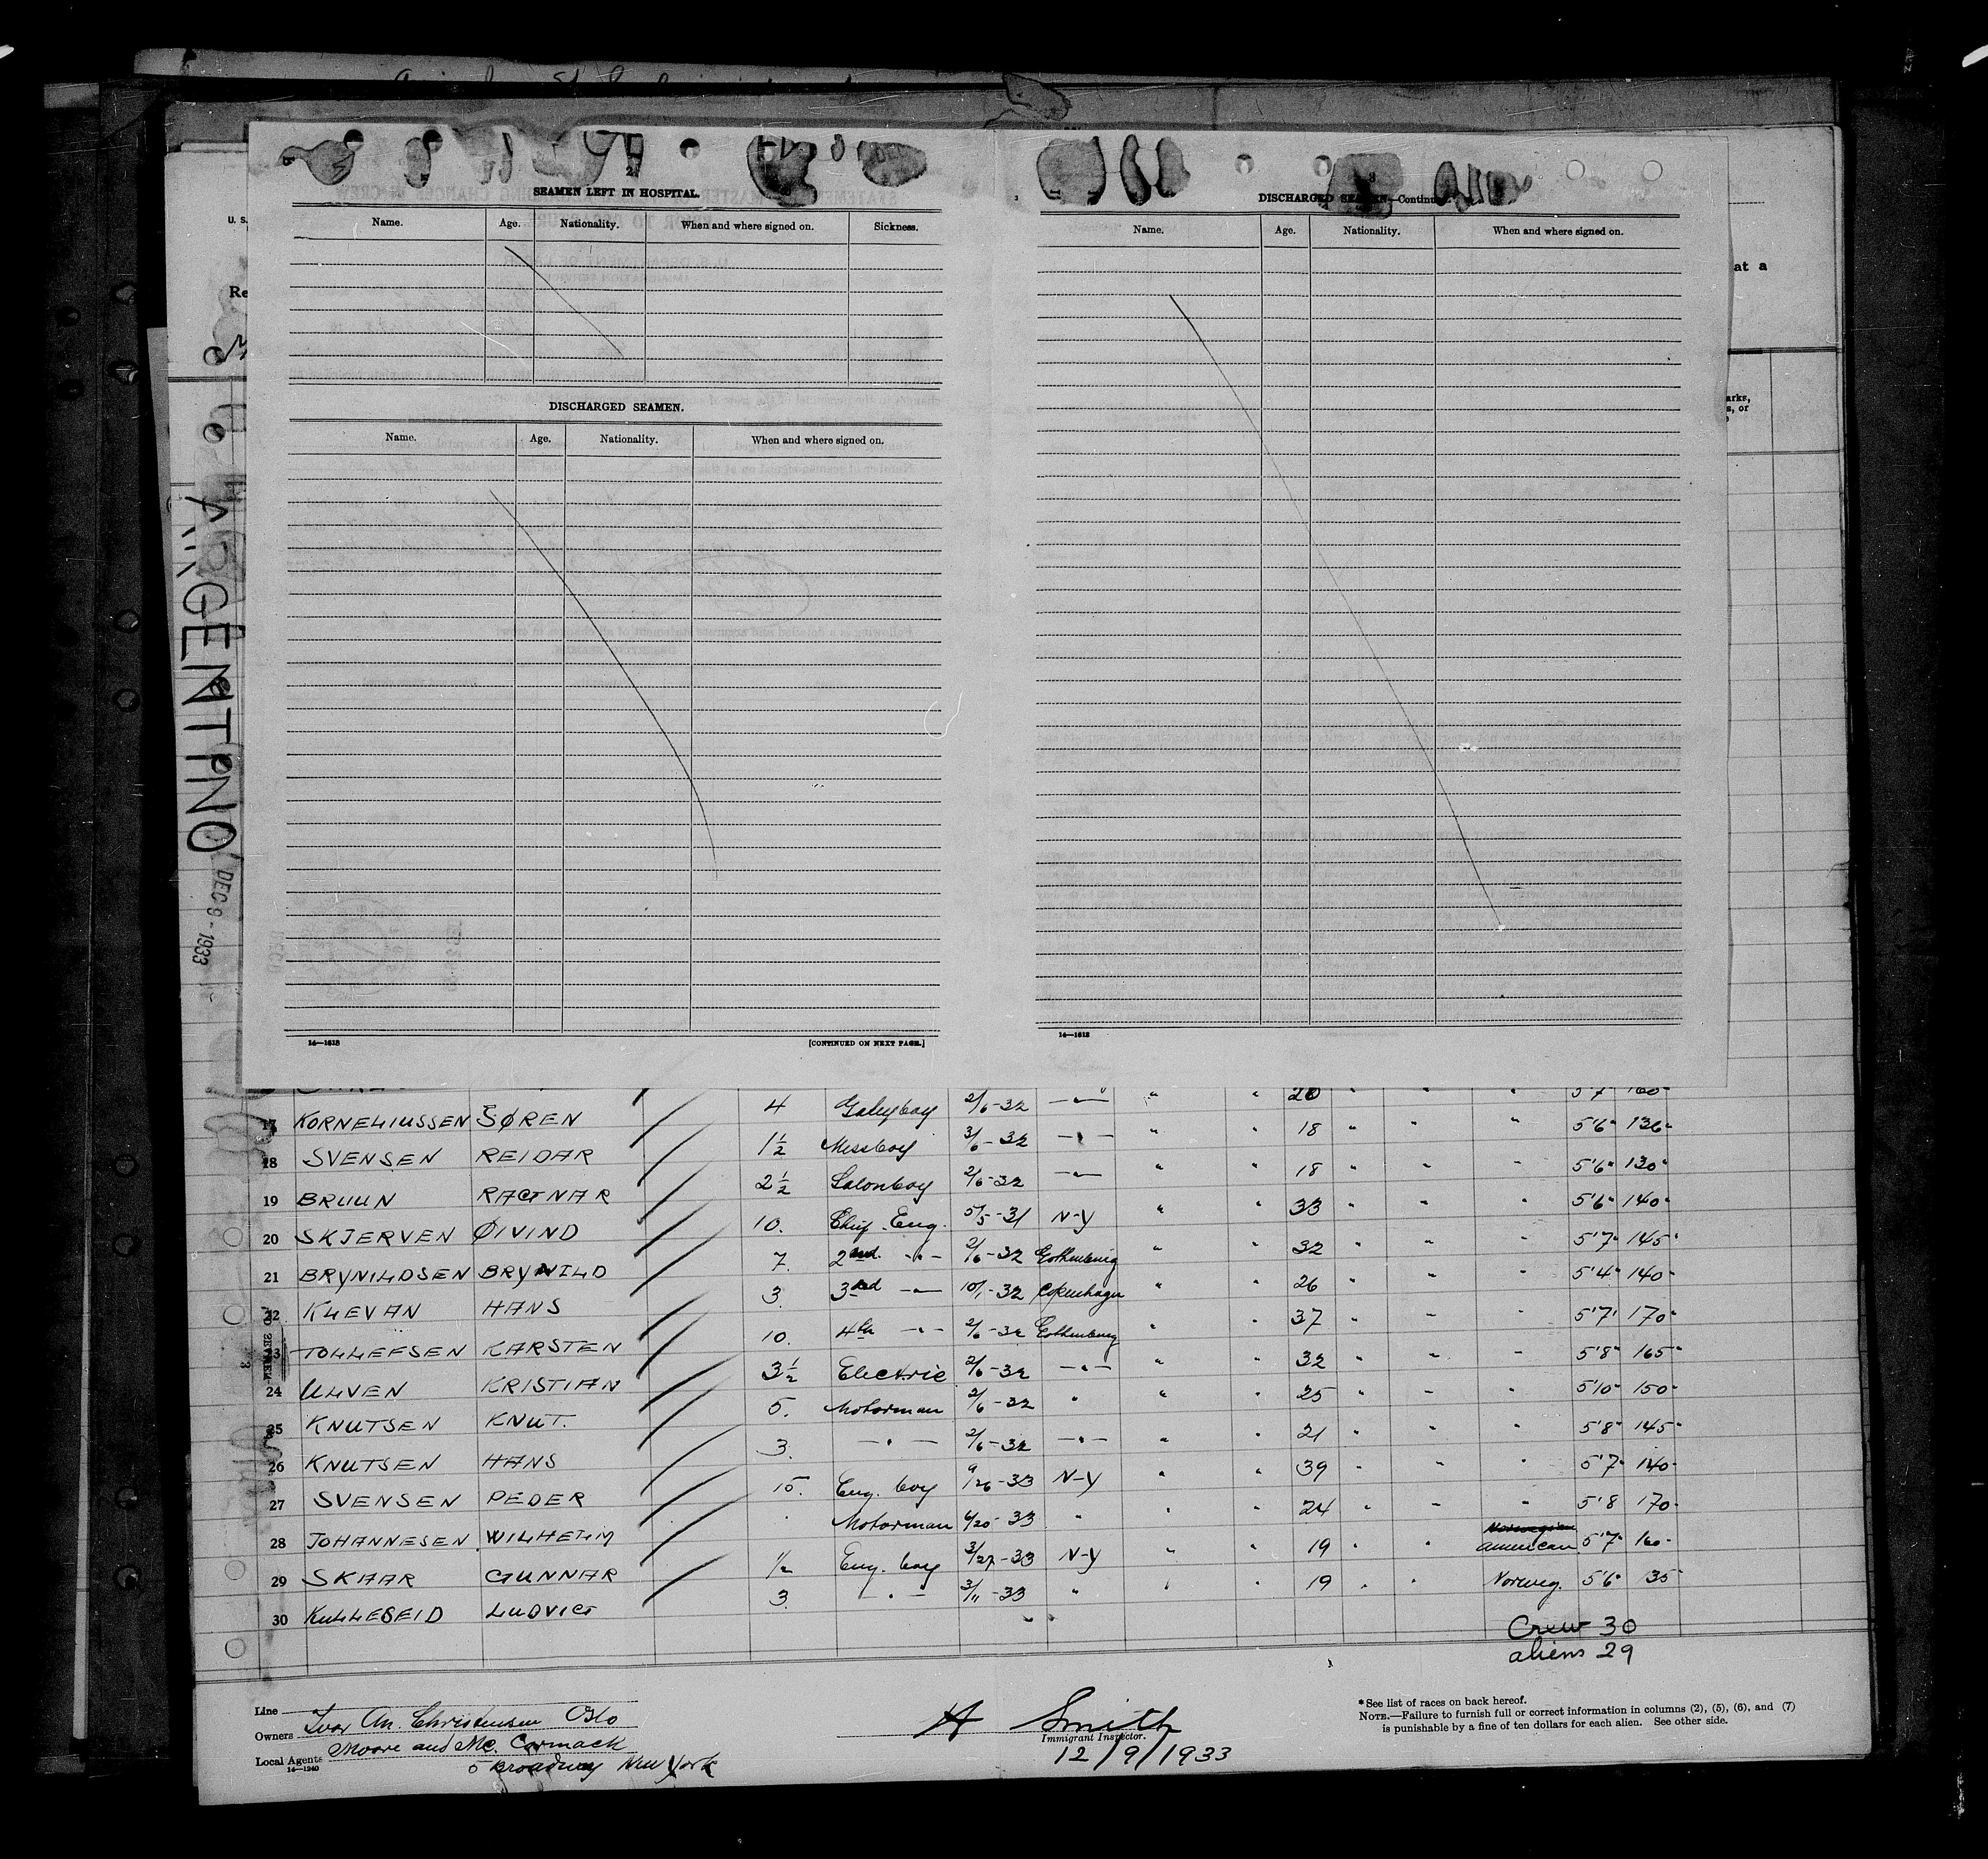 2
SEAMEN LEFT IN HOSPITAL.
Name. Age. Nationality. When and where signed on. Sickness.
DISCHARGED SEAMEN.
Name. Age. Nationality. When and where signed on.
14—1618 [CONTINUED ON NEXT PAGE.]
3
DISCHARGED SEAMEN—Continued.
Name. Age. Nationality. When and where signed on.
14—1618
U. S.
Re
at a
arks,
s, or
ARGENTINO
DEC 9 - 1933
4 Galleyboy 2/6-32 —"— " " 20 " " " 5'7" 160"
17 KORNELIUSSEN SØREN 1½ Messboy 3/6-32 —"— " " 18 " " " 5'6" 136"
18 SVENSEN REIDAR 2½ Salonboy 2/6-32 —"— " " 18 " " " 5'6" 130"
19 BRUUN RAGNAR 10. Chief Eng. 5/5-31 N-Y " " 33 " " " 5'6" 140"
20 SKJERVEN ØIVIND 7. 2nd —"— 2/6-32 Gothenburg " " 32 " " " 5'7" 145"
21 BRYNILDSEN BRYNILD 3. 3rd —"— 10/1-32 Copenhagen " " 26 " " " 5'4" 140"
22 KLEVAN HANS 10. 4th —"— 2/6-32 Gothenburg " " 37 " " " 5'7" 170"
23 TOLLEFSEN KARSTEN 3½ Electric 2/6-32 —"— " " 32 " " " 5'8" 165"
24 ULVEN KRISTIAN 5. Motorman 2/6-32 " " " 25 " " " 5'10" 150"
25 KNUTSEN KNUT. 3. —"— 2/6-32 —"— " " 21 " " " 5'8" 145"
26 KNUTSEN HANS 15. Eng. boy 9/26-33 N-Y " " 39 " " " 5'7" 140"
27 SVENSEN PEDER " Motorman 6/20-33 " " " 24 " " " 5'8 170"
28 JOHANNESEN WILHELM ½ Eng. boy 3/27-33 N-Y " " 19 " " Norwegian American 5'7" 160"
29 SKAAR GUNNAR 3. —"— 3/11-33 " " " 19 " " Norweg. 5'6" 135"
30 KULLESEID LUDVIG
Crew 30
aliens 29
Line
Owners Ivar An. Christensen Oslo
Local Agents Moore and Mc. Cormack
14—1240
5 Broadway New York
A Smith
Immigrant Inspector.
12/9/1933
*See list of races on back hereof.
NOTE.—Failure to furnish full or correct information in columns (2), (5), (6), and (7)
is punishable by a fine of ten dollars for each alien. See other side.